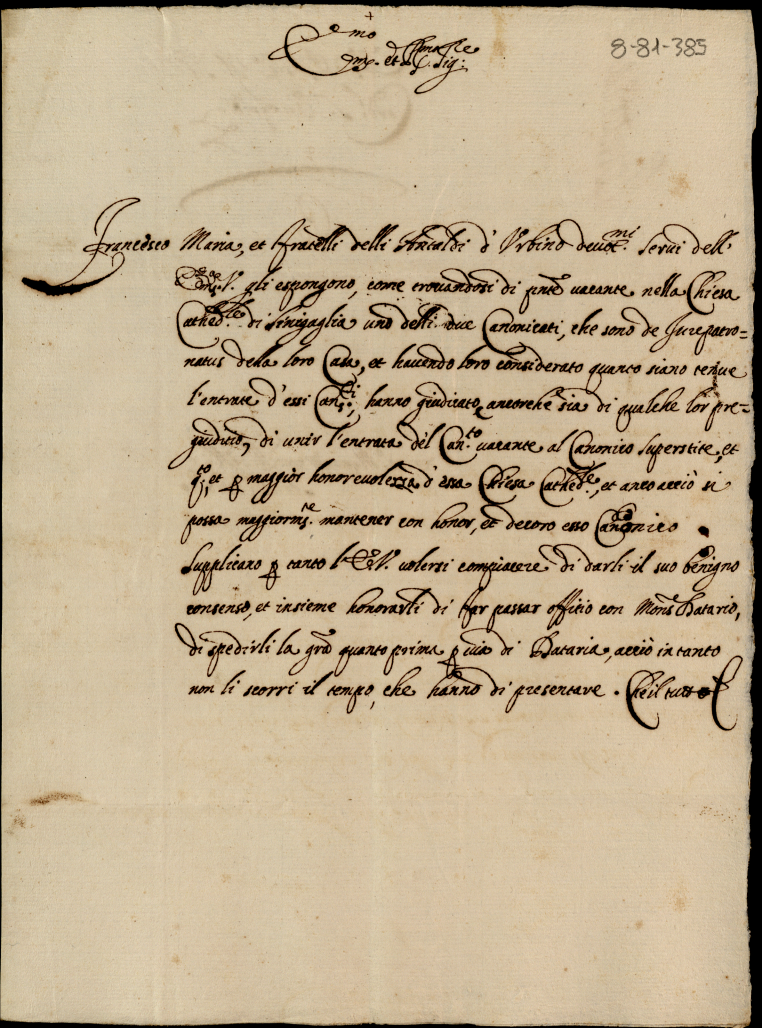 8-81-385
Em.mo et Sig:
Francesco Maria, et fratelli delli Antaldi d'Urbino devot.mi servi dell'
Em.za V. gli espongono, come trovandosi di pnte vacante nella Chiesa
Cathed.le di Sinigaglia uno delli due Canonicati, che sono de Jurepatro=
natus della loro Casa, et havendo loro considerato quanto siano tenue
l'entrate d'essi Can.ti, hanno giudicato, ancorche sia di qualche lor pre=
giuditio, di unir l'entrata del Can.to vacante al Canonico superstite, et
q.to, et p maggior honorevolezza d'essa Chiesa Cathed.le, et anco acciò si
possa maggiorm.te mantener con honor, et decoro esso Canonico
Supplicano p tanto l'Em.V. volersi compiacere di darli il suo benigno
consenso, et insieme honorarli di far passar offitio con Mons.r Datario,
di spedirli la gra quanto prima p via di Dataria, acciò intanto
non li scorri il tempo, che hanno di presentare. Che il tutto